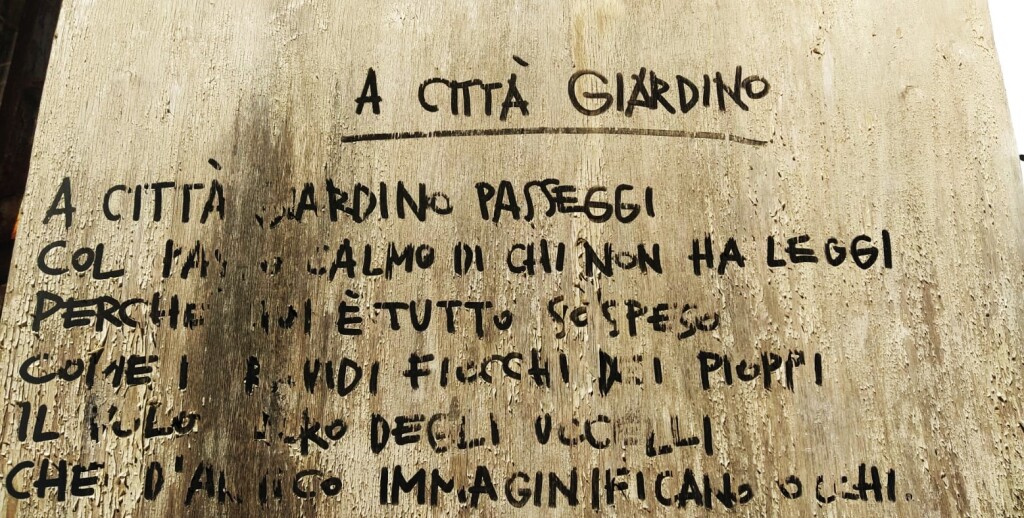 A CITTÀ GIARDINO
A CITTÀ GIARDINO PASSEGGI
COL PASSO CALMO DI CHI NON HA LEGGI
PERCHE È TUTTO SOSPESO
COME I FIOCCHI DEI PIOPPI
IL VOLO DEGLI UCCELLI
CHE D'ANTICO IMMAGINIFICANO OCCHI